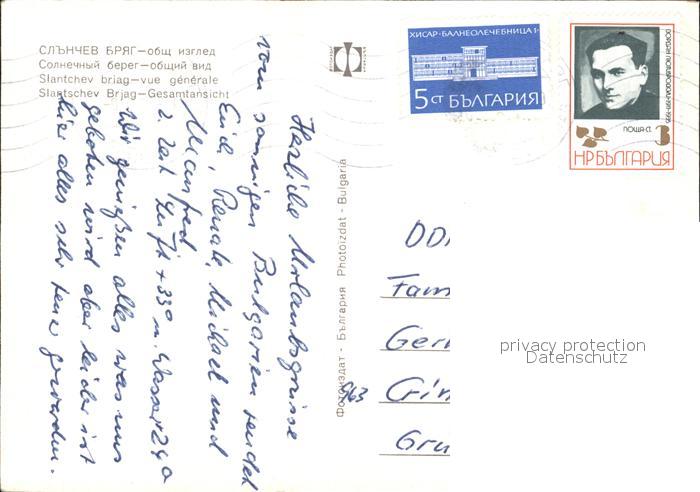 СЛЪНЧЕВ БРЯГ—общ изглед
Солнечный берег—общий вид
Slantchev briag—vue générale
Slantschev Brjag—Gesamtansicht
ХИСАР·БАЛНЕОЛЕЧЕБНИЦА 1·
5 СТ БЪЛГАРИЯ
ПОЩА·СТ. 3
НРБЪЛГАРИЯ
Herzliche Urlaubsgrüsse
vom sonnigen Bulgarien sendet
Euch, Renate, Michael und
Manfred
z. Zeit Luft + 33° u. Wasser 24°
Wir genießen alles was uns
geboten wird aber leider ist
hier alles sehr teuer geworden.
Фотоиздат - България Photoizdat - Bulgaria
DD
Fam
Ger
963 Crim
Gru
privacy protection
Datenschutz